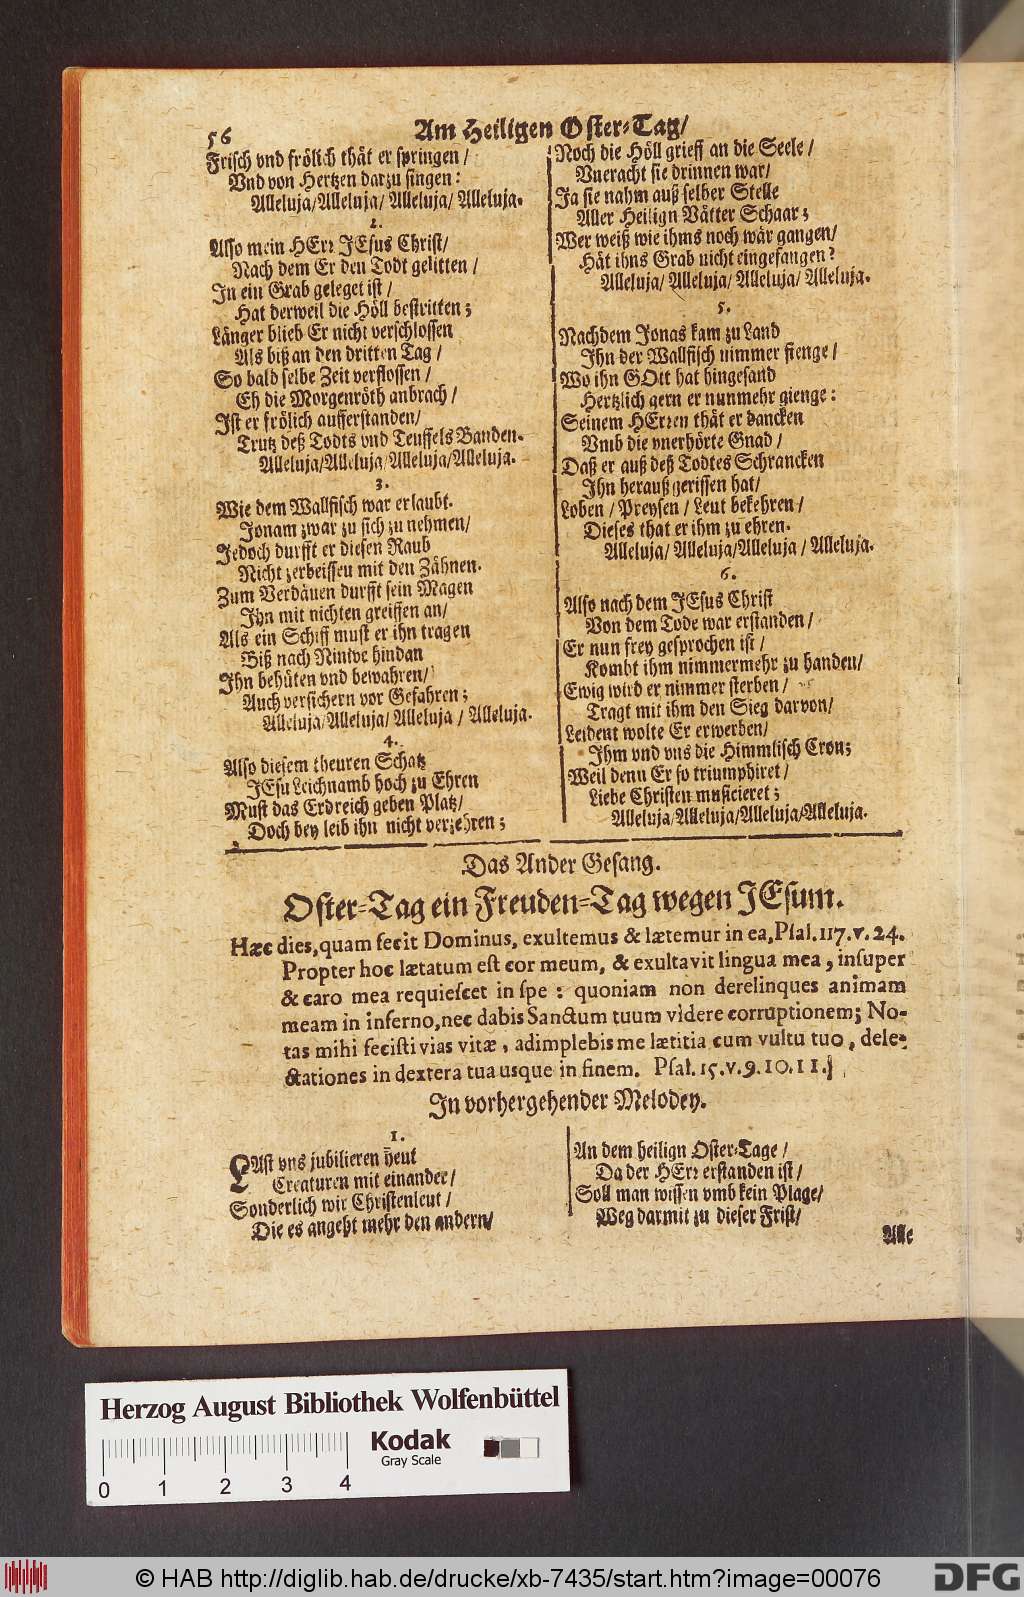 56
Am Heiligen Oster-Tag/
Frisch vnd frölich thät er springen/
Vnd von Hertzen darzu singen:
Alleluja/Alleluja/Alleluja/Alleluja.
2.
Also mein HErr JEsus Christ/
Nach dem Er den Todt gelitten/
In ein Grab geleget ist/
Hat derweil die Höll bestritten;
Länger blieb Er nicht verschlossen
Als biß an den dritten Tag/
So bald selbe Zeit verflossen/
Eh die Morgenröth anbrach/
Ist er frölich aufferstanden/
Trutz deß Todts vnd Teuffels Banden.
Alleluja/Alleluja/Alleluja/Alleluja.
3.
Wie dem Wallfisch war erlaubt.
Jonam zwar zu sich zu nehmen/
Jedoch durfft er diesen Raub
Nicht zerbeissen mit den Zähnen.
Zum Verdäuen durfft sein Magen
Ihn mit nichten greiffen an/
Als ein Schiff must er ihn tragen
Biß nach Ninive hindan
Ihn behüten vnd bewahren/
Auch versichern vor Gefahren;
Alleluja/Alleluja/Alleluja/Alleluja.
4.
Also diesem theuren Schatz
JEsu Leichnamb hoch zu Ehren
Must das Erdreich geben Platz/
Doch bey leib ihn nicht verzehren;
Noch die Höll grieff an die Seele/
Vneracht sie drinnen war/
Ja sie nahm auß selber Stelle
Aller Heilign Vätter Schaar;
Wer weiß wie ihms noch wär gangen/
Hät ihns Grab nicht eingefangen?
Alleluja/Alleluja/Alleluja/Alleluja.
5.
Nachdem Jonas kam zu Land
Ihn der Wallfisch nimmer fienge/
Wo ihn GOtt hat hingesand
Hertzlich gern er nunmehr gienge:
Seinem HErren thät er dancken
Vmb die vnerhörte Gnad/
Daß er auß deß Todtes Schrancken
Ihn herauß gerissen hat/
Loben/Preysen/Leut bekehren/
Dieses that er ihm zu ehren.
Alleluja/Alleluja/Alleluja/Alleluja.
6.
Also nach dem JEsus Christ
Von dem Tode war erstanden/
Er nun frey gesprochen ist/
Kombt ihm nimmermehr zu handen/
Ewig wird er nimmer sterben/
Tragt mit ihm den Sieg darvon/
Leident wolte Er erwerben/
Ihm vnd vns die Himmlisch Cron;
Weil denn Er so triumphiret/
Liebe Christen musicieret;
Alleluja/Alleluja/Alleluja/Alleluja.
Das Ander Gesang.
Oster-Tag ein Freuden-Tag wegen JEsum.
Hæc dies, quam fecit Dominus, exultemus & lætemur in ea, Psal. 117. v. 24.
Propter hoc lætatum est cor meum, & exultavit lingua mea, insuper
& caro mea requiescet in spe: quoniam non derelinques animam
meam in inferno, nec dabis Sanctum tuum videre corruptionem; No-
tas mihi fecisti vias vitæ, adimplebis me lætitia cum vultu tuo, dele-
ctationes in dextera tua usque in finem. Psal. 15. v. 9. 10. 11.
In vorhergehender Melodey.
1.
LAst vns jubilieren heut
Creaturen mit einander/
Sonderlich wir Christenleut/
Die es angeht mehr den andern/
An dem heilign Oster-Tage/
Da der HErr erstanden ist/
Soll man wissen vmb kein Plage/
Weg darmit zu dieser Frist/
Alle
Herzog August Bibliothek Wolfenbüttel
Kodak
Gray Scale
0 1 2 3 4
© HAB http://diglib.hab.de/drucke/xb-7435/start.htm?image=00076
DFG